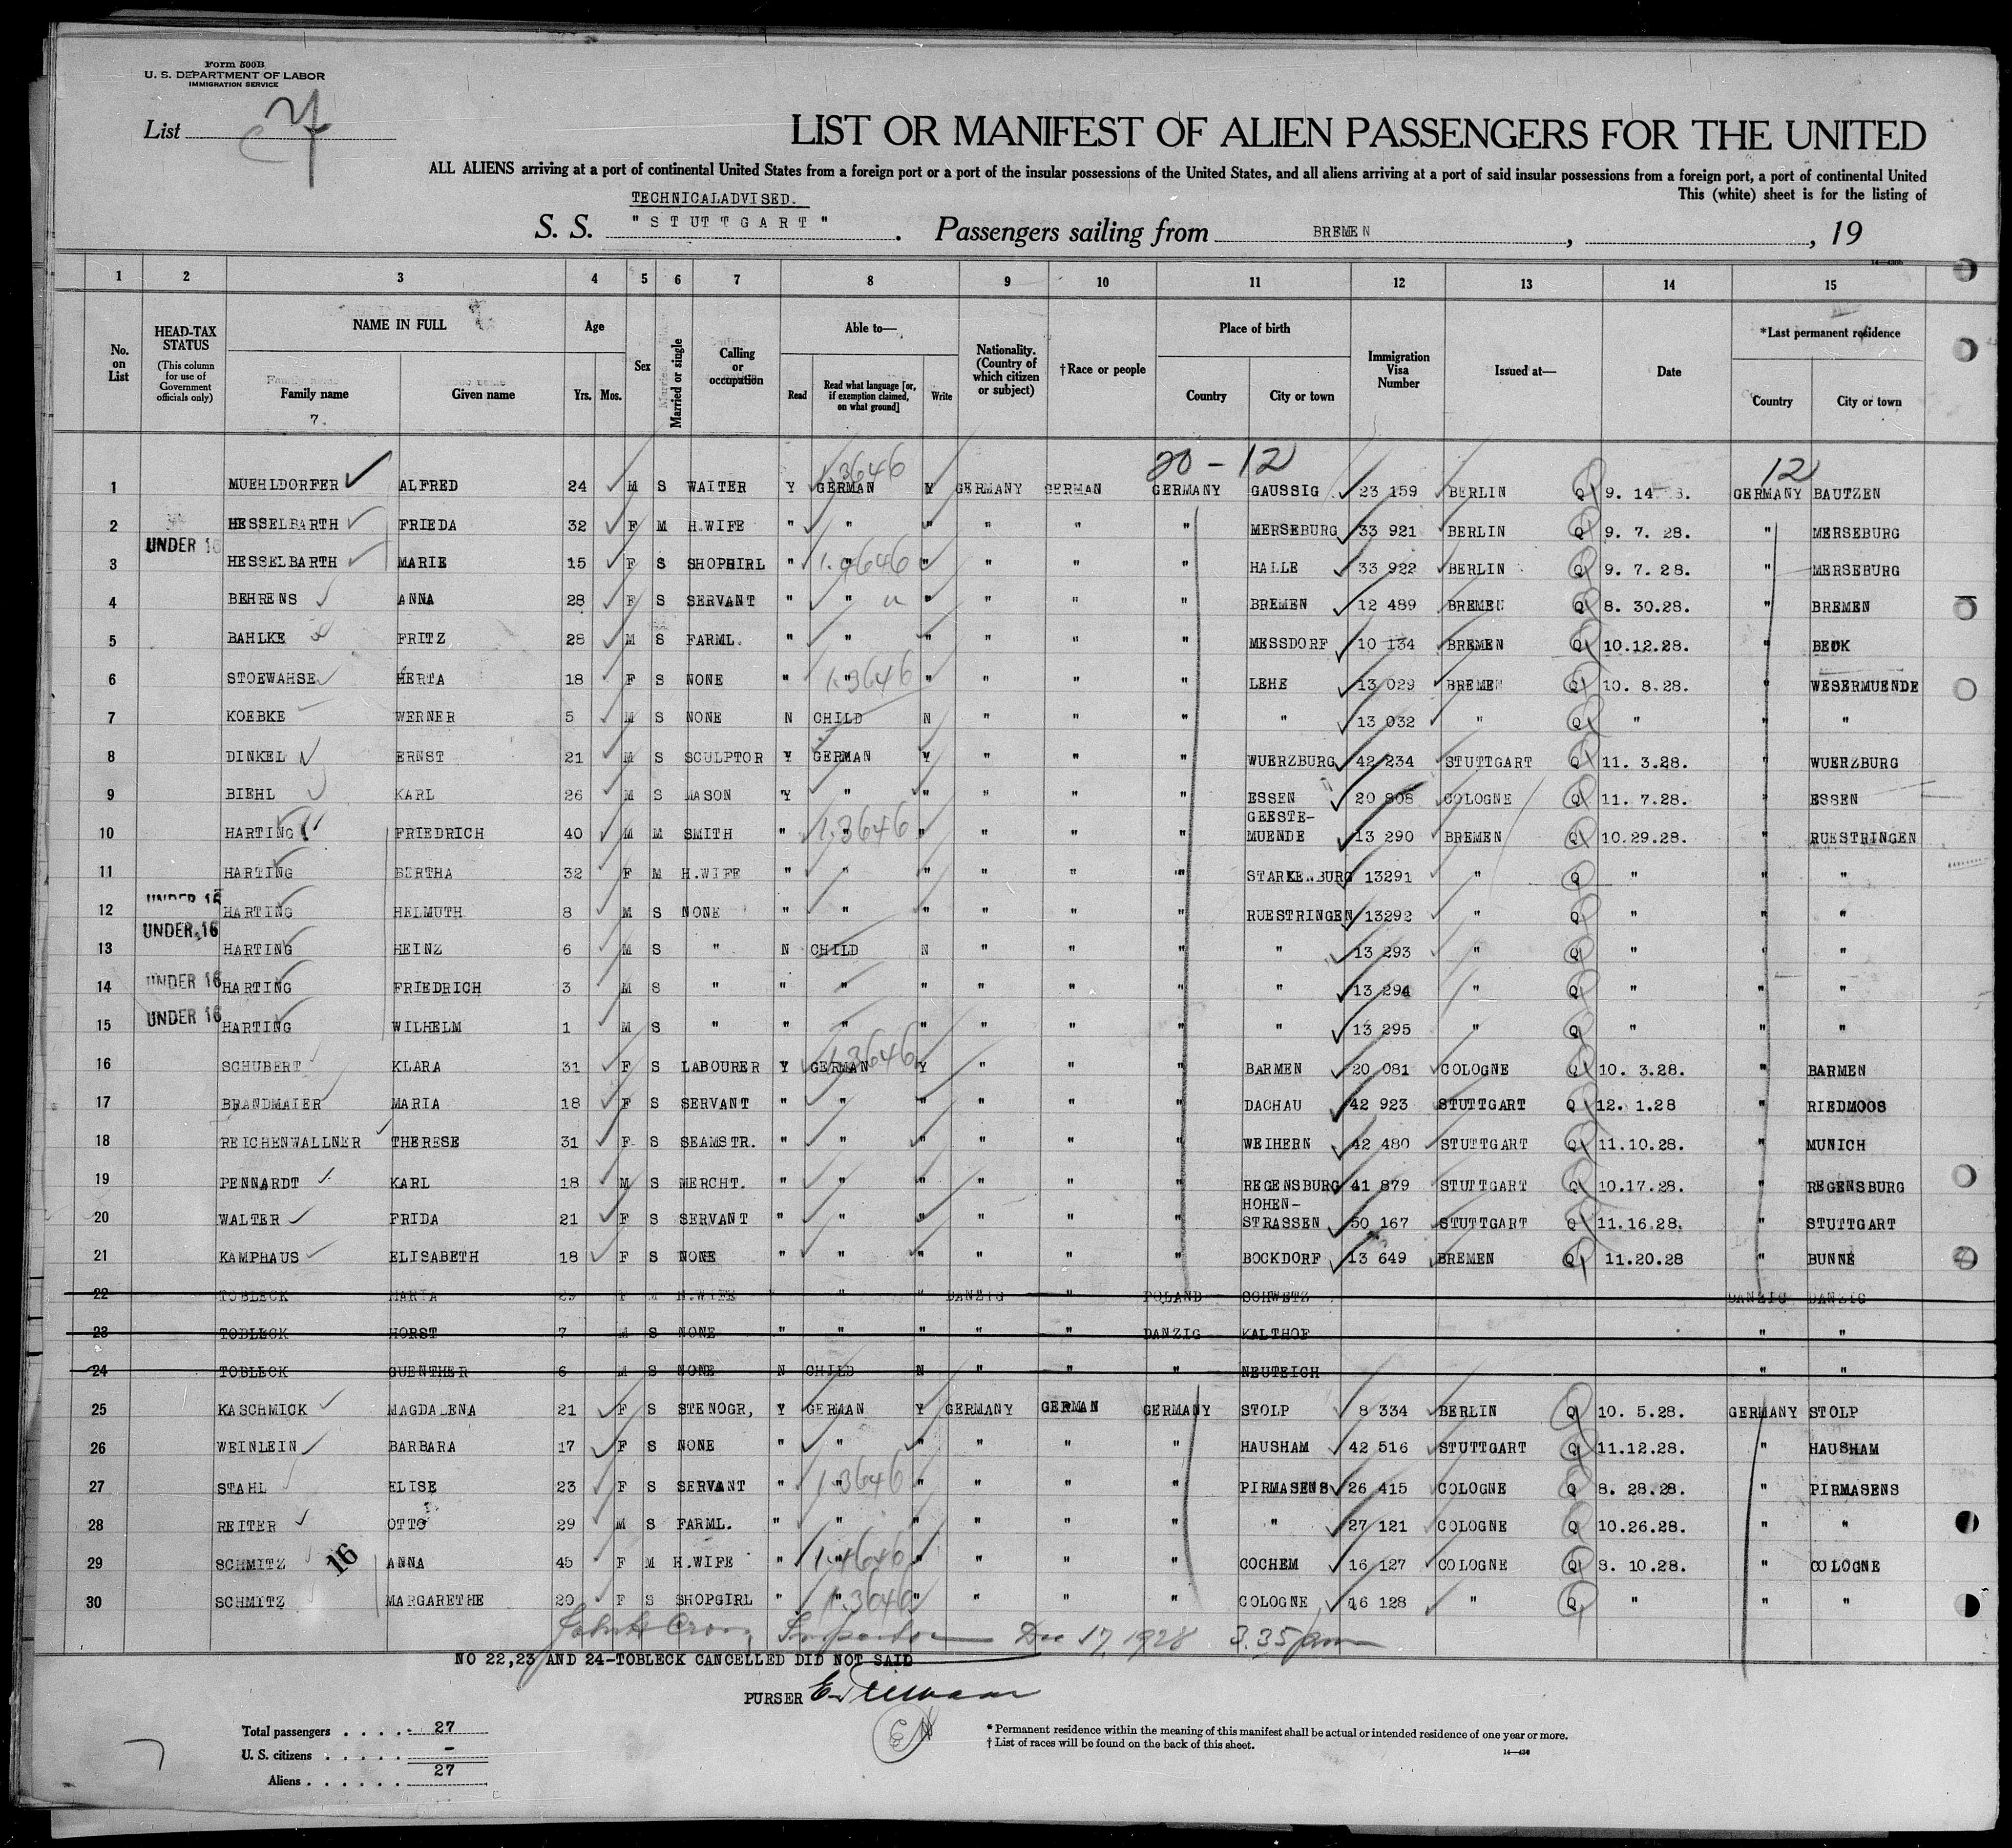 Form 500B
U. S. DEPARTMENT OF LABOR
IMMIGRATION SERVICE
List
LIST OR MANIFEST OF ALIEN PASSENGERS FOR THE UNITED
ALL ALIENS arriving at a port of continental United States from a foreign port or a port of the insular possessions of the United States, and all aliens arriving at a port of said insular possessions from a foreign port, a port of continental United
This (white) sheet is for the listing of
TECHNICALADVISED.
S. S. "STUTTGART". Passengers sailing from BREMEN, , 19
1 2 3 4 5 6 7 8 9 10 11 12 13 14 15
No. on List
HEAD-TAX STATUS (This column for use of Government officials only)
NAME IN FULL Family name Given name
7.
Age Yrs. Mos.
Sex
Married or single
Calling or occupation
Able to— Read Read what language [or, if exemption claimed, on what ground] Write
Nationality. (Country of which citizen or subject)
†Race or people
Place of birth Country City or town
Immigration Visa Number
Issued at—
Date
*Last permanent residence Country City or town
20 - 12 12
1 MUEHLDORFER ALFRED 24 M S WAITER Y GERMAN Y GERMANY GERMAN GERMANY GAUSSIG 23 159 BERLIN Q 9. 14 GERMANY BAUTZEN
2 HESSELBARTH FRIEDA 32 F M H.WIFE " " " " " " MERSEBURG 33 921 BERLIN Q 9. 7. 28. " MERSEBURG
UNDER 16
3 HESSELBARTH MARIE 15 F S SHOPGIRL " " " " " " HALLE 33 922 BERLIN Q 9. 7. 28. " MERSEBURG
4 BEHRENS ANNA 28 F S SERVANT " " " " " " BREMEN 12 489 BREMEN Q 8. 30.28. " BREMEN
5 BAHLKE FRITZ 28 M S FARML. " " " " " " MESSDORF 10 134 BREMEN Q 10.12.28. " BECK
6 STOEWAHSE HERTA 18 F S NONE " " " " " " LEHE 13 029 BREMEN Q 10. 8.28. " WESERMUENDE
7 KOEBKE WERNER 5 M S NONE N CHILD N " " " " 13 032 " Q " " "
8 DINKEL ERNST 21 M S SCULPTOR Y GERMAN Y " " " WUERZBURG 42 234 STUTTGART Q 11. 3.28. " WUERZBURG
9 BIEHL KARL 26 M S MASON Y " " " " " ESSEN 20 808 COLOGNE Q 11. 7.28. " ESSEN
10 HARTING FRIEDRICH 40 M M SMITH " " " " " " GEESTE-MUENDE 13 290 BREMEN Q 10.29.28. " RUESTRINGEN
11 HARTING BERTHA 32 F M H.WIFE " " " " " " STARKENBURG 13291 " Q " " "
UNDER 16
12 HARTING HELMUTH 8 M S NONE " " " " " " RUESTRINGEN 13292 " Q " " "
UNDER 16
13 HARTING HEINZ 6 M S " N CHILD N " " " " 13 293 " Q " " "
UNDER 16
14 HARTING FRIEDRICH 3 M S " " " " " " " " 13 294 " Q " " "
UNDER 16
15 HARTING WILHELM 1 M S " " " " " " " " 13 295 " Q " " "
16 SCHUBERT KLARA 31 F S LABOURER Y GERMAN Y " " " BARMEN 20 081 COLOGNE Q 10. 3.28. " BARMEN
17 BRANDMAIER MARIA 18 F S SERVANT " " " " " " DACHAU 42 923 STUTTGART Q 12. 1.28 " RIEDMOOS
18 REICHENWALLNER THERESE 31 F S SEAMSTR. " " " " " " WEIHERN 42 480 STUTTGART Q 11.10.28. " MUNICH
19 PENNARDT KARL 18 M S MERCHT. " " " " " " REGENSBURG 41 879 STUTTGART Q 10.17.28. " REGENSBURG
20 WALTER FRIDA 21 F S SERVANT " " " " " " HOHEN-STRASSEN 50 167 STUTTGART Q 11.16.28. " STUTTGART
21 KAMPHAUS ELISABETH 18 F S NONE " " " " " " BOCKDORF 13 649 BREMEN Q 11.20.28 " BUNNE
22 TOBLECK MARIA 29 F M H.WIFE " " DANZIG " POLAND SCHWETZ DANZIG DANZIG
23 TOBLECK HORST 7 M S NONE " " " " " DANZIG KALTHOF " "
24 TOBLECK GUENTHER 6 M S NONE N CHILD N " " " NEUTEICH " "
25 KASCHMICK MAGDALENA 21 F S STENOGR, Y GERMAN Y GERMANY GERMAN GERMANY STOLP 8 334 BERLIN Q 10. 5.28. GERMANY STOLP
26 WEINLEIN BARBARA 17 F S NONE " " " " " " HAUSHAM 42 516 STUTTGART Q 11.12.28. " HAUSHAM
27 STAHL ELISE 23 F S SERVANT " " " " " " PIRMASENS 26 415 COLOGNE Q 8. 28.28. " PIRMASENS
28 REITER OTTO 29 M S FARML. " " " " " " " 27 121 COLOGNE Q 10.26.28. " "
29 SCHMITZ 16 ANNA 45 F M H.WIFE " " " " " " COCHEM 16 127 COLOGNE Q 8. 10.28. " COLOGNE
30 SCHMITZ MARGARETHE 20 F S SHOPGIRL " " " " " " COLOGNE 16 128 " Q " " "
Inspector Dec 17, 1928 3.35 pm
NO 22,23 AND 24-TOBLECK CANCELLED DID NOT SAID
PURSER
Total passengers . . . . . 27
U. S. citizens . . . . . -
Aliens . . . . . . 27
* Permanent residence within the meaning of this manifest shall be actual or intended residence of one year or more.
† List of races will be found on the back of this sheet.